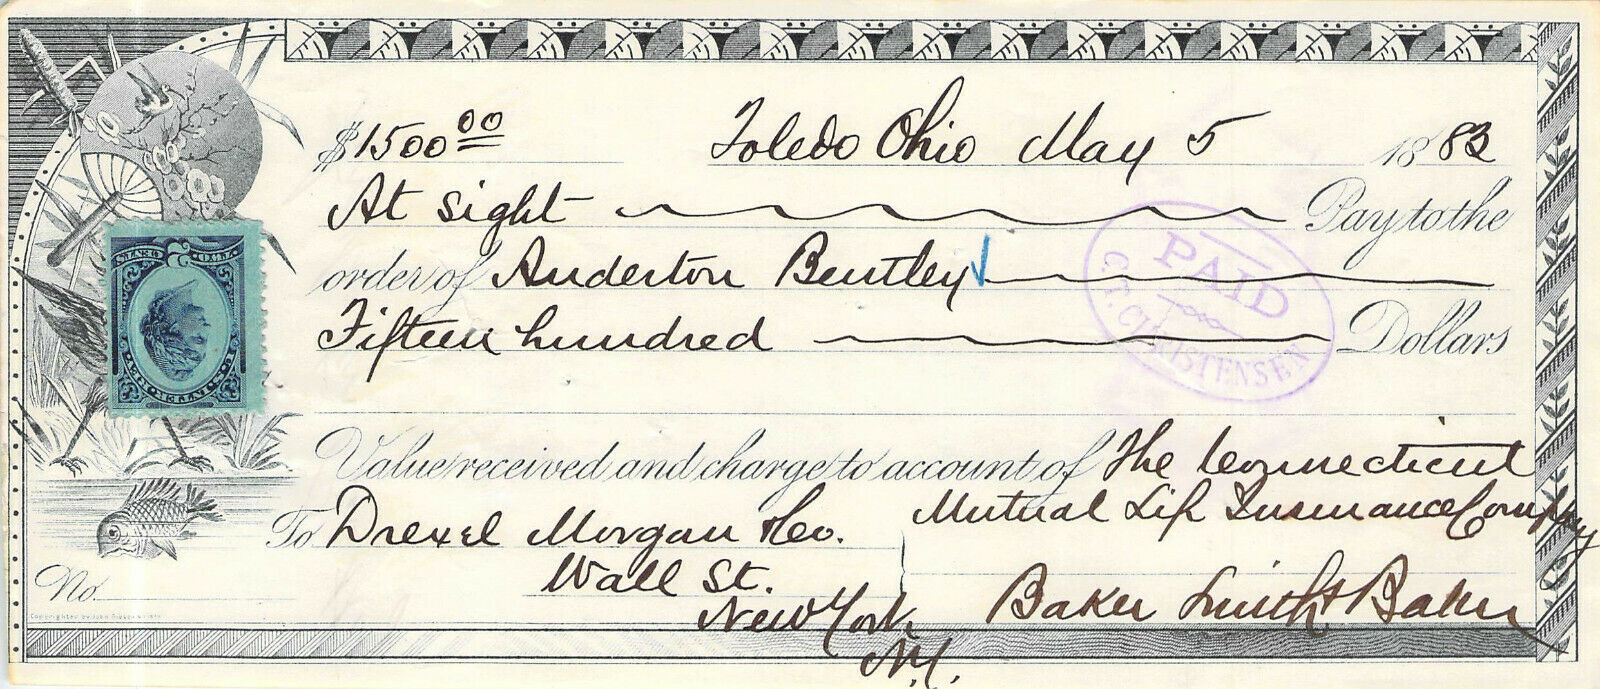 $1500 00 Toledo Ohio May 5 1883
At sight Pay to the
order of Anderton Bentley
Fifteen hundred Dollars
PAID
C. T. CHRISTENSEN
Value received and charge to account of The Connecticut
Mutual Life Insurance Company
To Drexel Morgan & Co.
Wall St.
New York
N.Y.
Baker Smith & Baker
No.